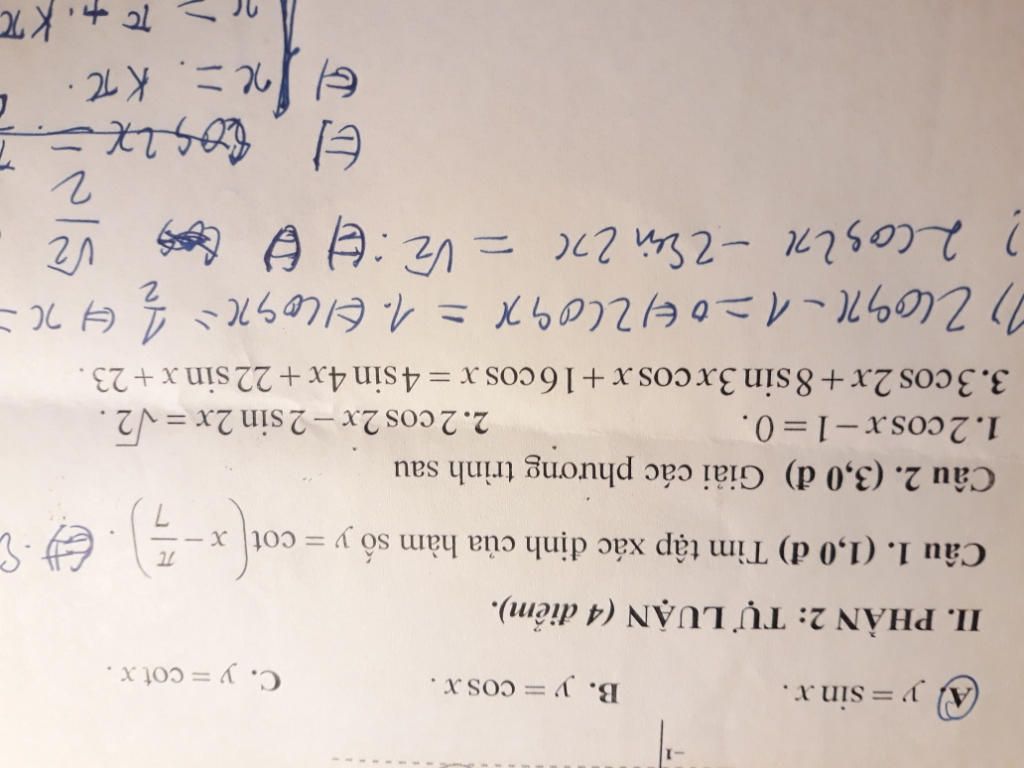 -1
A. y = sin x. B. y = cos x. C. y = cot x.
II. PHẦN 2: TỰ LUẬN (4 điểm).
Câu 1. (1,0 đ) Tìm tập xác định của hàm số y = cot(x − π/7).
Câu 2. (3,0 đ) Giải các phương trình sau
1. 2 cos x − 1 = 0. 2. 2 cos 2x − 2 sin 2x = √2.
3. 3 cos 2x + 8 sin 3x cos x + 16 cos x = 4 sin 4x + 22 sin x + 23.
1) 2cosx − 1 = 0 ⇔ 2cosx = 1. ⇔ cosx = 1/2 ⇔ x =
2cos2x − 2sin2x = √2. ⇔ √2/2
⇔ cos2x =
⇔ [ x = kπ.
x = π + kπ